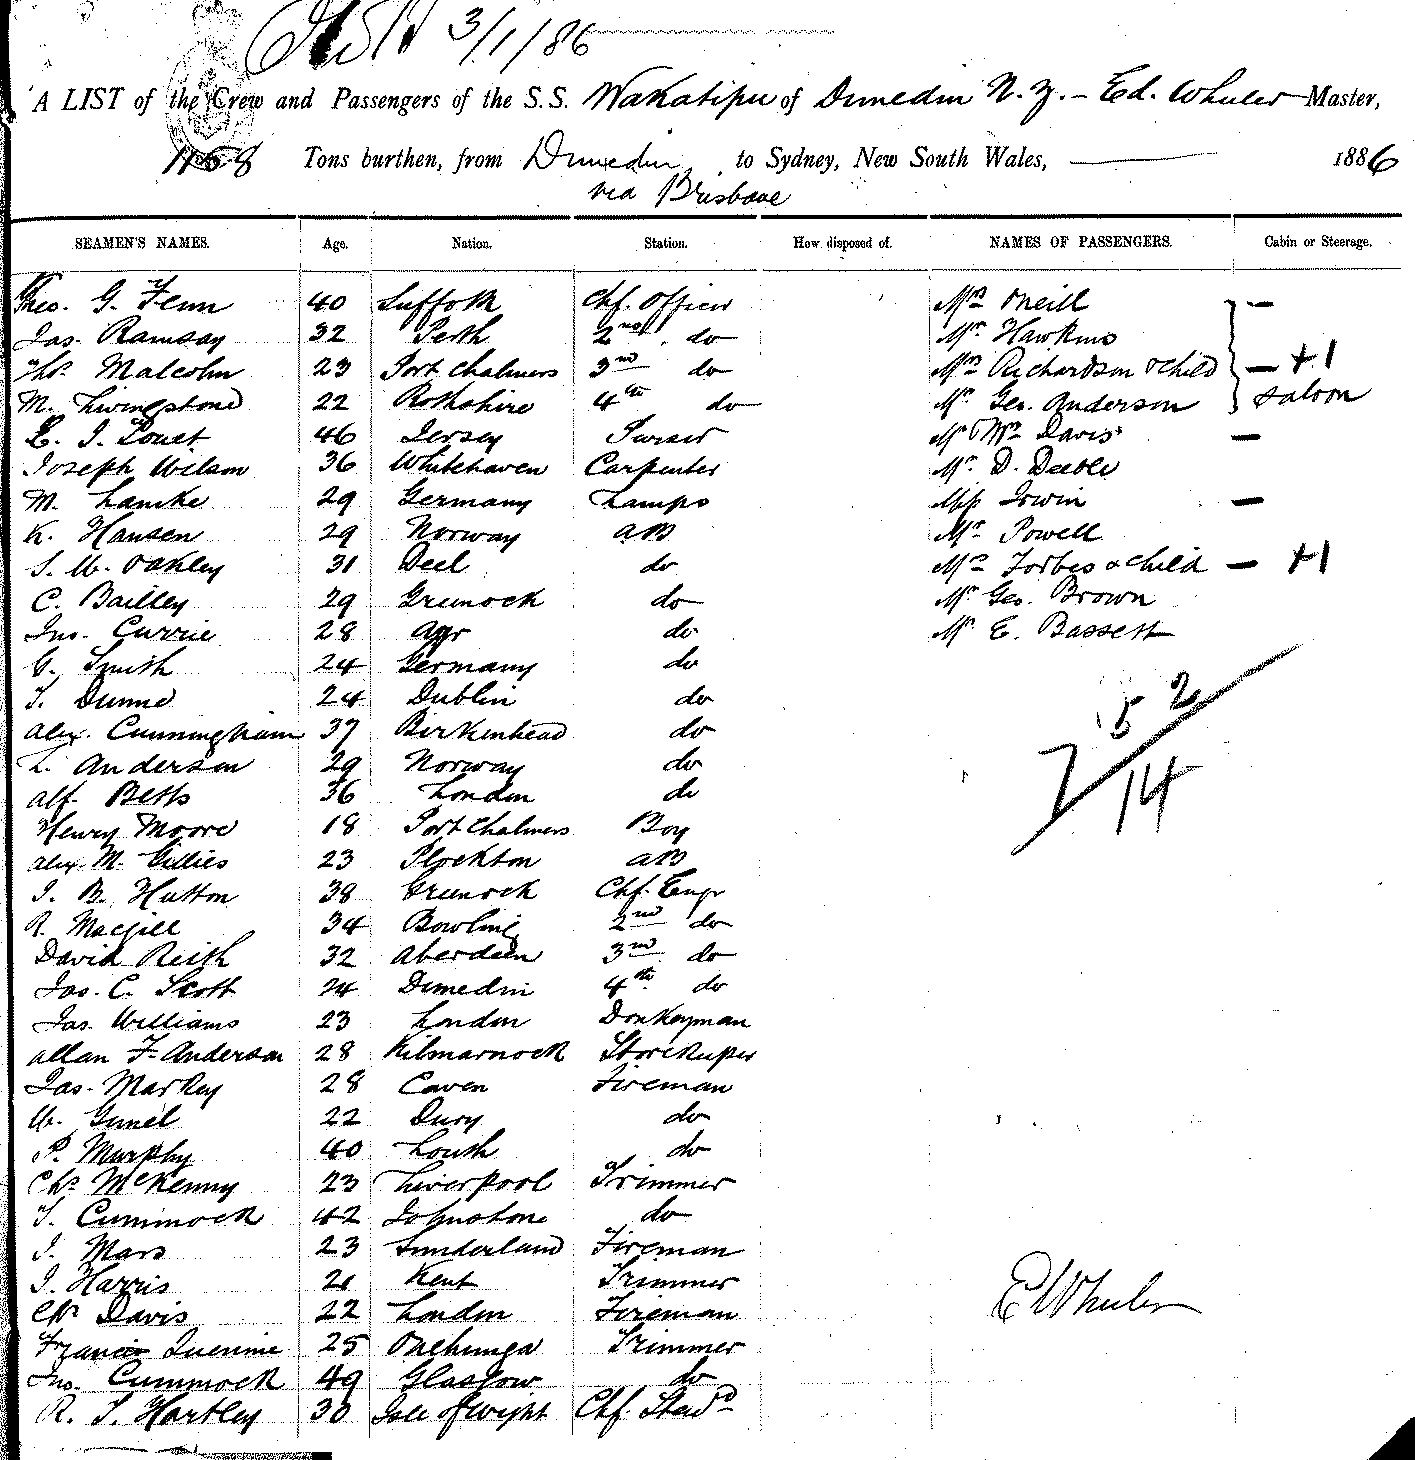 3/1/86
A LIST of the Crew and Passengers of the S.S. Wakatipu of Dunedin N.Z. - Ed. Wheeler Master,
1158 Tons burthen, from Dunedin to Sydney, New South Wales, 1886
via Brisbane
SEAMEN'S NAMES. Age. Nation. Station. How disposed of. NAMES OF PASSENGERS. Cabin or Steerage.
Theo. G. Fenn 40 Suffolk Chf. Officer Mrs Oneill —
Jas. Ramsay 32 Perth 2nd do Mr. Hawkins
Thos. Malcolm 23 Port Chalmers 3rd do Mrs Richardson & Child — +1
M. Livingstone 22 Rosshire 4th do Mr. Geo. Anderson Saloon
46 Jersey Purser Mr & Mrs Davis —
Joseph Wilson 36 Whitehaven Carpenter Mr. D. Deeble
M. Lamke 29 Germany Lamps Miss Irwin —
K. Hansen 29 Norway AB Mr. Powell
S. W. Oakley 31 Deel do Mrs Forbes & Child — +1
C. Bailley 29 Greenock do Mr. Geo. Brown
Jno. Currie 28 Ayr do Mr. E. Bassett
Smith 24 Germany do
T. Dunne 24 Dublin do
Alex. Cunningham 37 Birkenhead do
L. Anderson 29 Norway do
Alf. Betts 36 London do
Henry Moore 18 Port Chalmers Boy
Alex. M. Gillies 23 Plockton AB
J. B. Hutton 38 Greenock Chf. Engr
R. Macgill 34 Bowling 2nd do
David Reith 32 Aberdeen 3rd do
Jas. C. Scott 24 Dunedin 4th do
Jas. Williams 23 London Donkeyman
Allan F. Anderson 28 Kilmarnock Storekeeper
Jas. Markey 28 Caven Fireman
W. 22 do
P. Murphy 40 Louth do
Chs. McKenny 23 Liverpool Trimmer
T. Cummock 42 Johnstone do
J. Mars 23 Sunderland Fireman
J. Harris 21 Kent Trimmer
Davis 22 London Fireman
Francis 25 Onehunga Trimmer
Jno. Cummock 49 Glasgow do
R. T. Hartley 30 Isle of Wight Chf. Stewd
5 2
7 14
E Wheeler